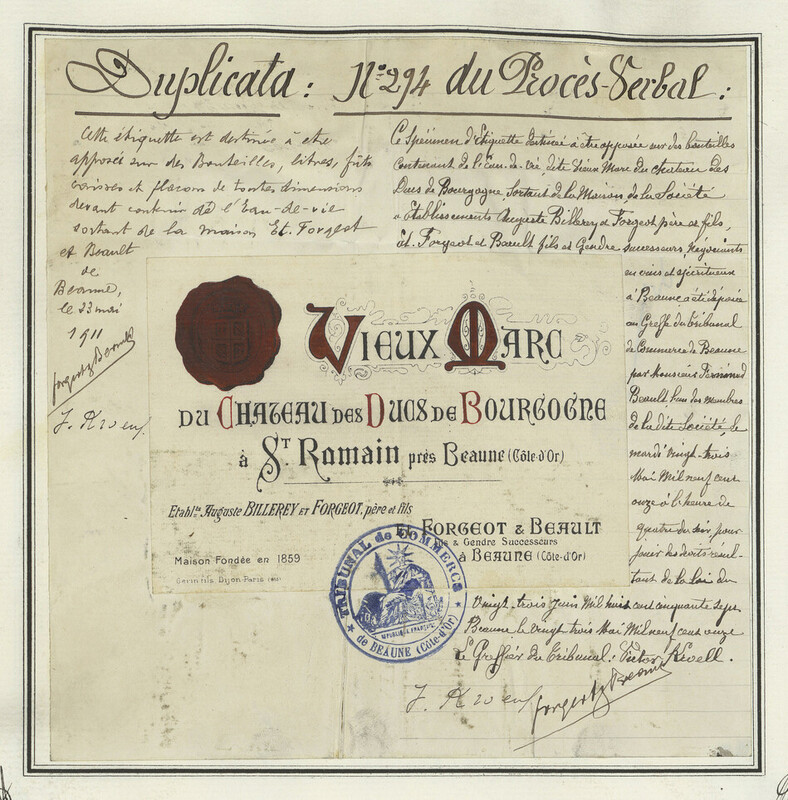 Duplicata : N° 294 du Procès-Verbal :
Cette étiquette est destinée à etre
apposée sur des Bouteilles, litres, fûts
caisses et flacons de toutes dimensions
devant contenir de l'Eau-de-vie
sortant de la maison Et. Forgeot
et Beault
de
Beaune,
le 23 mai
1911
Ce Spécimen d'Etiquette destinée à être apposée sur des bouteilles
Contenant de l'Eau-de-vie, dite Vieux Marc du chateau des
Ducs de Bourgogne, Sortant de la Maison, de la Société
Etablissements Auguste Billerey et Forgeot père et fils,
Et. Forgeot et Beault fils et Gendre successeurs, Négociants
en vins et spiritueux
à Beaune a été déposée
au Greffe du Tribunal
de Commerce de Beaune
par Monsieur Fernand
Beault l'un des membres
de la dite Société, le
mardi vingt-trois
Mai Mil neuf cent
onze à l'heure de
quatre du soir pour
jouir des droits résul-
tant de la loi du
Vingt-trois Juin Mil huit cent cinquante sept
Beaune le vingt trois Mai Mil neuf cent onze
Le Greffier du Tribunal : Victor
VIEUX MARC
DU CHATEAU DES DUCS DE BOURGOGNE
à ST Romain près Beaune (Côte-d'Or)
Etablts Auguste BILLEREY ET FORGEOT, père et fils
Et. FORGEOT & BEAULT
Fils & Gendre Successeurs
à BEAUNE (Côte-d'Or)
Maison Fondée en 1859
Gerin fils, Dijon-Paris
TRIBUNAL de COMMERCE
RÉPUBLIQUE FRANÇAISE
de BEAUNE (Côte-d'Or)